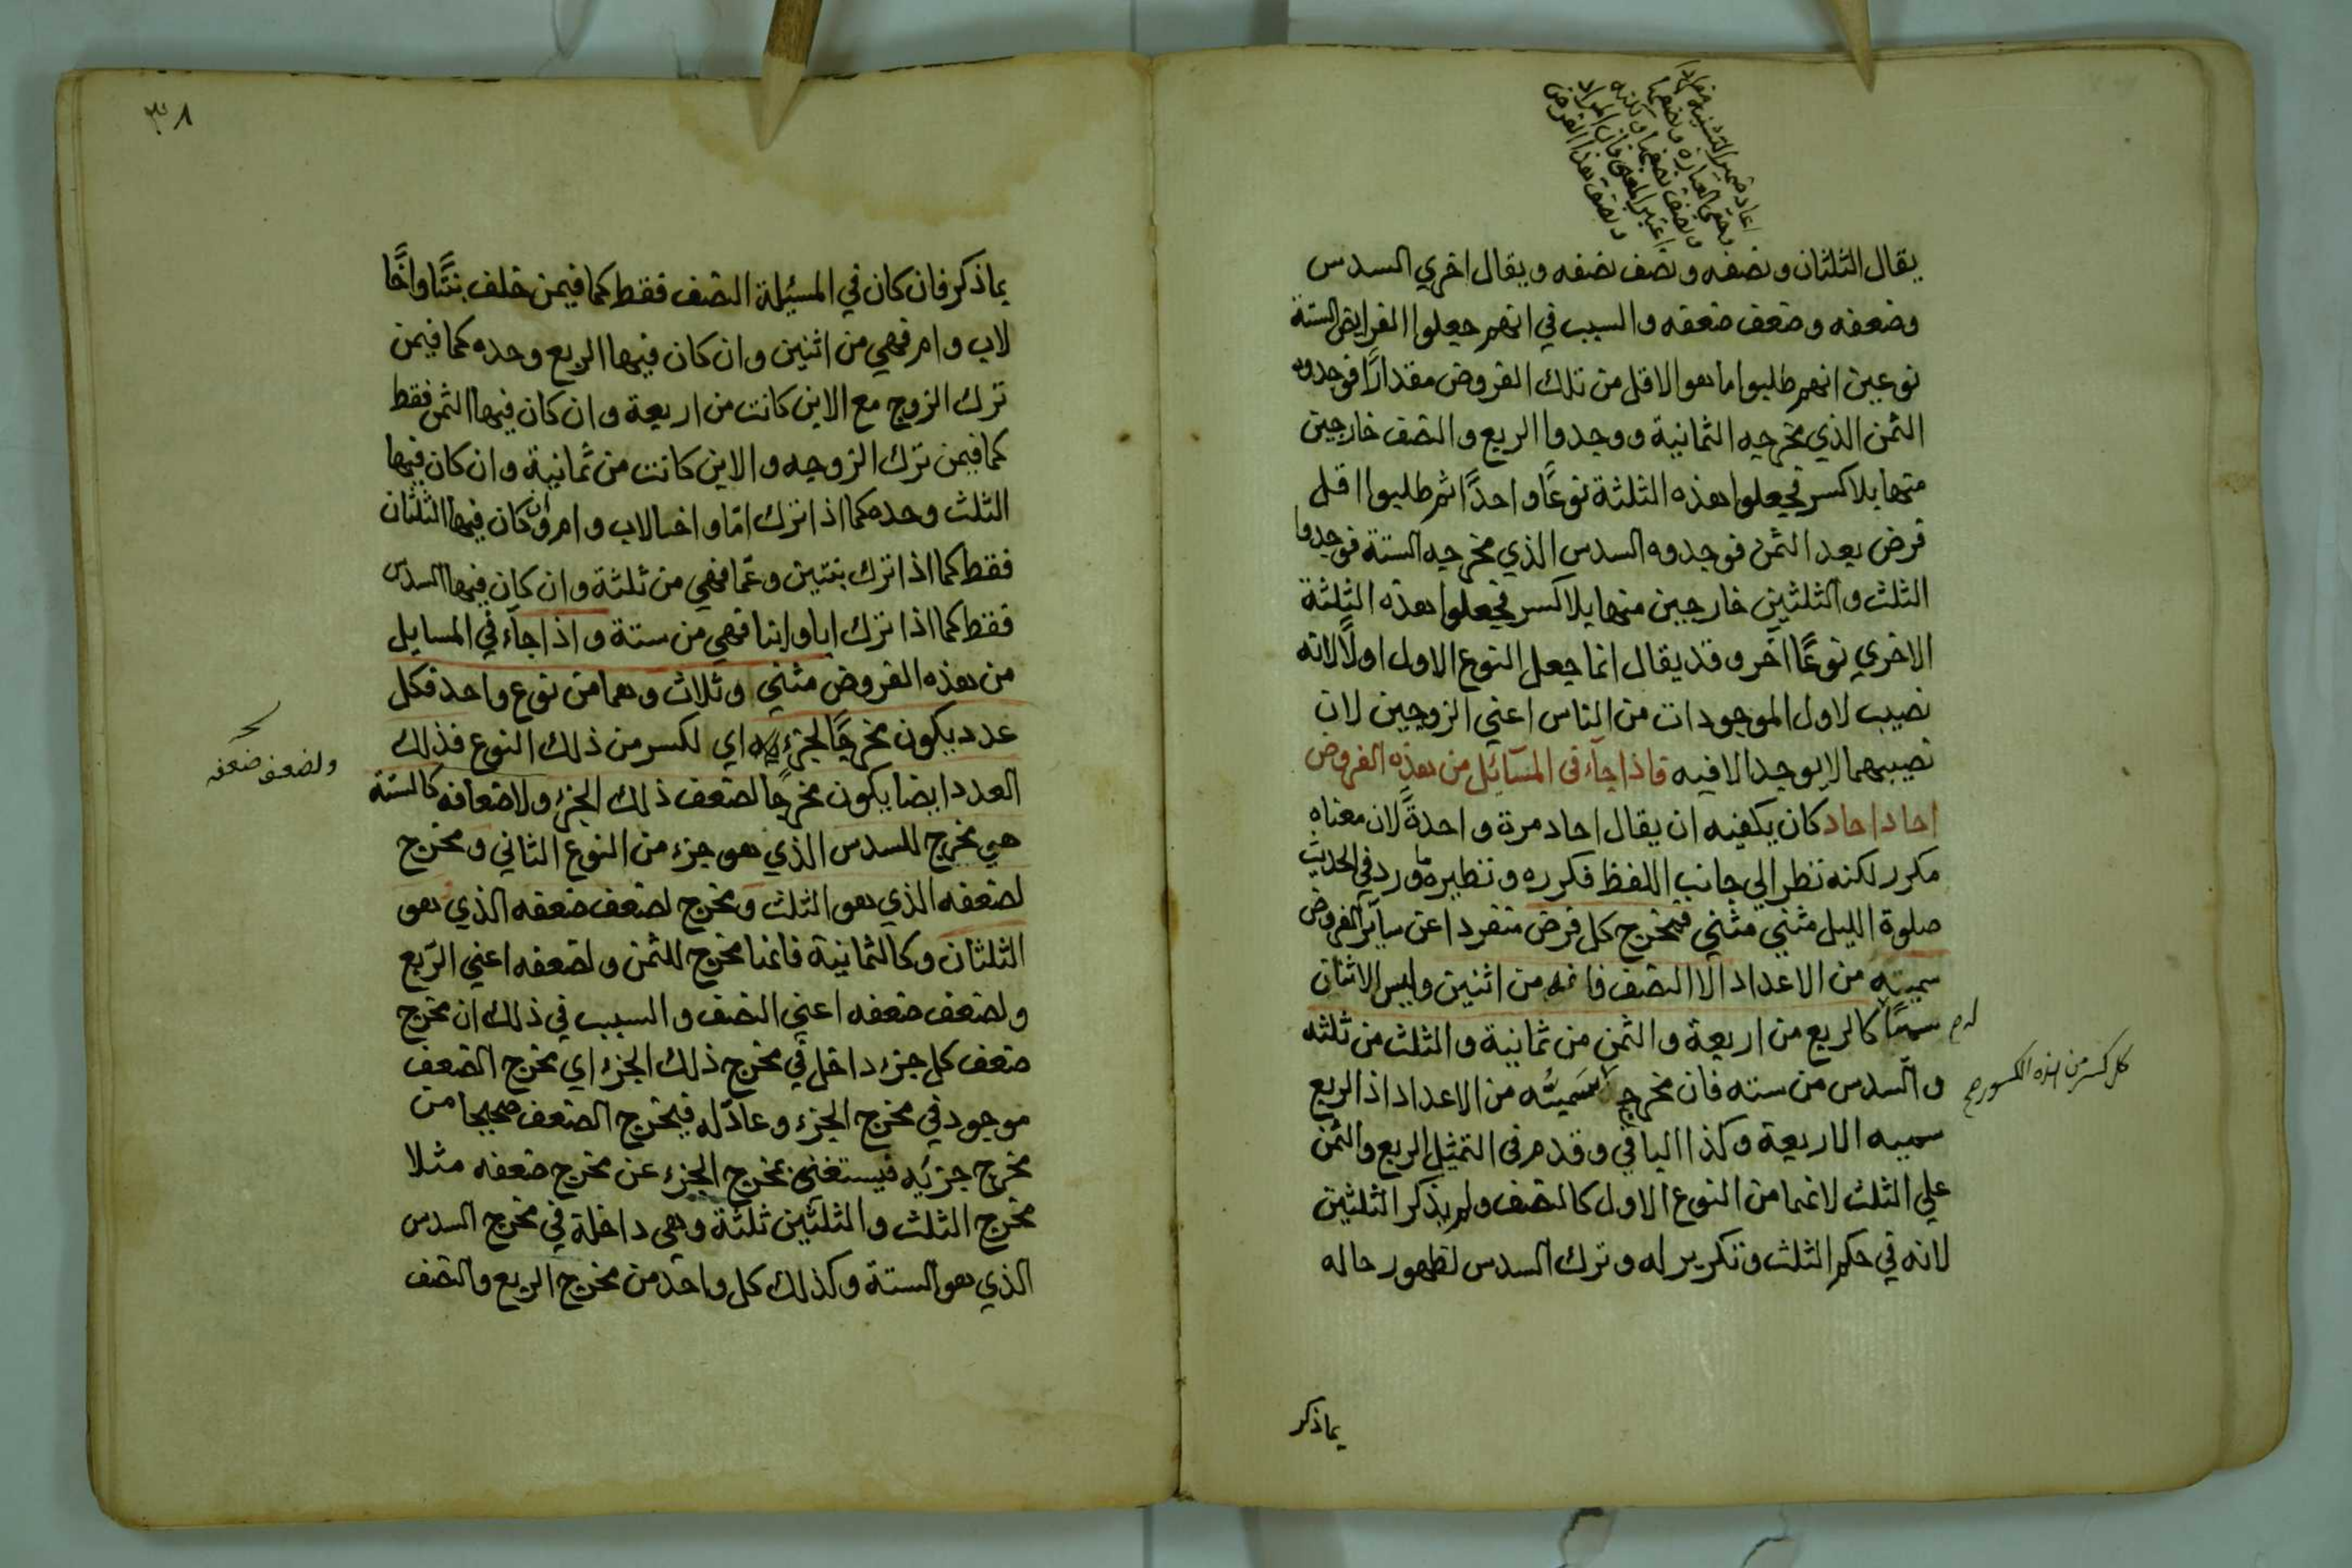 يقال الثلثان ونصفه ونصف نصفه ويقال اخري السدس
وضعفه وضعف ضعفه والسبب في انهم جعلوا الفرايض الستة
نوعين انهم طلبوا ما هو الاقل من تلك الفروض مقدارًا فوجدوه
الثمن الذي مخرجه الثمانية ووجدوا الربع والنصف خارجين
منها بلا كسر فجعلوا هذه الثلثة نوعًا واحدًا ثم طلبوا اقل
فرض بعد الثمن فوجدوه السدس الذي مخرجه الستة فوجدوا
الثلث والثلثين خارجين منها بلا كسر فجعلوا هذه الثلثة
الاخري نوعًا آخر وقد يقال انما جعل النوع الاول اولًا لانه
نصيب لاول الموجودات من الناس اعني الزوجين لان
نصيبهما لا يوجد الا فيه فاذا جآء في المسآئل من هذه الفروض
احاد احاد كان يكفيه ان يقال احاد مرة واحدةً لان معناه
مكرر لكنه نظر الي جانب اللفظ فكرره ونظيره ما ورد في الحديث
صلوة الليل مثني مثني فمخرج كل فرض منفردا عن سآئر الفروض
سميته من الاعداد الا النصف فانه من اثنين وليس الاثنان
سميًا له كالربع من اربعة والثمن من ثمانية والثلث من ثلثه
والسدس من سته فان مخرج سميّه من الاعداد اذ الربع
كل كسر من هذه الكسور صح
سميه الاربعة وكذا الباقي وقدم في التمثيل الربع والثمن
علي الثلث لانهما من النوع الاول كالنصف ولم يذكر الثلثين
لانه في حكم الثلث وتكرير له وترك السدس لظهور حاله
بما ذكر
٣٨
بما ذكر فان كان في المسئلة النصف فقط كما فيمن خلف بنتًا واخًا
لاب وام فهي من اثنين وان كان فيها الربع وحده كما فيمن
ترك الزوج مع الابن كانت من اربعة وان كان فيها الثمن فقط
كما فيمن ترك الزوجه والابن كانت من ثمانية وان كان فيها
الثلث وحده كما اذا ترك امّا واخا لاب وام وان كان فيها الثلثان
فقط كما اذا ترك بنتين وعمّا فهي من ثلثة وان كان فيها السدس
فقط كما اذا ترك ابا وابنا فهي من ستة واذا جآء في المسايل
من هذه الفروض مثني وثلاث وهما من نوع واحد فكل
عدد يكون مخرجًا لجزء اي لكسر من ذلك النوع فذلك
العدد ايضا يكون مخرجًا لضعف ذلك الجزء ولاضعافه كالستة
ولضعف ضعفه
هي مخرج للسدس الذي هو جزء من النوع الثاني ومخرج
لضعفه الذي هو الثلث ومخرج لضعف ضعفه الذي هو
الثلثان وكالثمانية فانها مخرج للثمن ولضعفه اعني الرّبع
ولضعف ضعفه اعني النصف والسبب في ذلك ان مخرج
ضعف كل جزء داخل في مخرج ذلك الجزء اي مخرج الضعف
موجود في مخرج الجزء وعادّ له فيخرج الضعف صحيحا من
مخرج جزئه فيستغني بمخرج الجزء عن مخرج ضعفه مثلا
مخرج الثلث والثلثين ثلثة وهي داخلة في مخرج السدس
الذي هو الستة وكذلك كل واحد من مخرج الربع والنصف